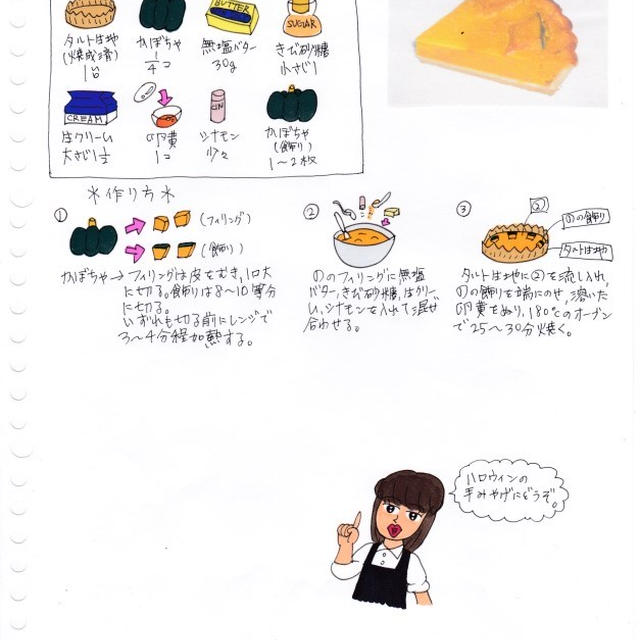 BUTTER
SUGAR
タルト生地
(焼成済)
1台
かぼちゃ
1/4コ
無塩バター
30g
きび砂糖
小さじ1
CREAM
CIN
生クリーム
大さじ1½
卵黄
1コ
シナモン
少々
かぼちゃ
(飾り)
1〜2枚
*作り方*
①
(フィリング)
(飾り)
かぼちゃ→フィリングは皮をむき、1口大
に切る。飾りは8〜10等分
に切る。
いずれも切る前にレンジで
3〜4分程加熱する。
②
①のフィリングに無塩
バター、きび砂糖、生クリー
ム、シナモンを入れて混ぜ
合わせる。
③
②
①の飾り
タルト生地
タルト生地に②を流し入れ、
①の飾りを端にのせ、溶いた
卵黄をぬり、180℃のオーブン
で25〜30分焼く。
ハロウィンの
手みやげにどうぞ。